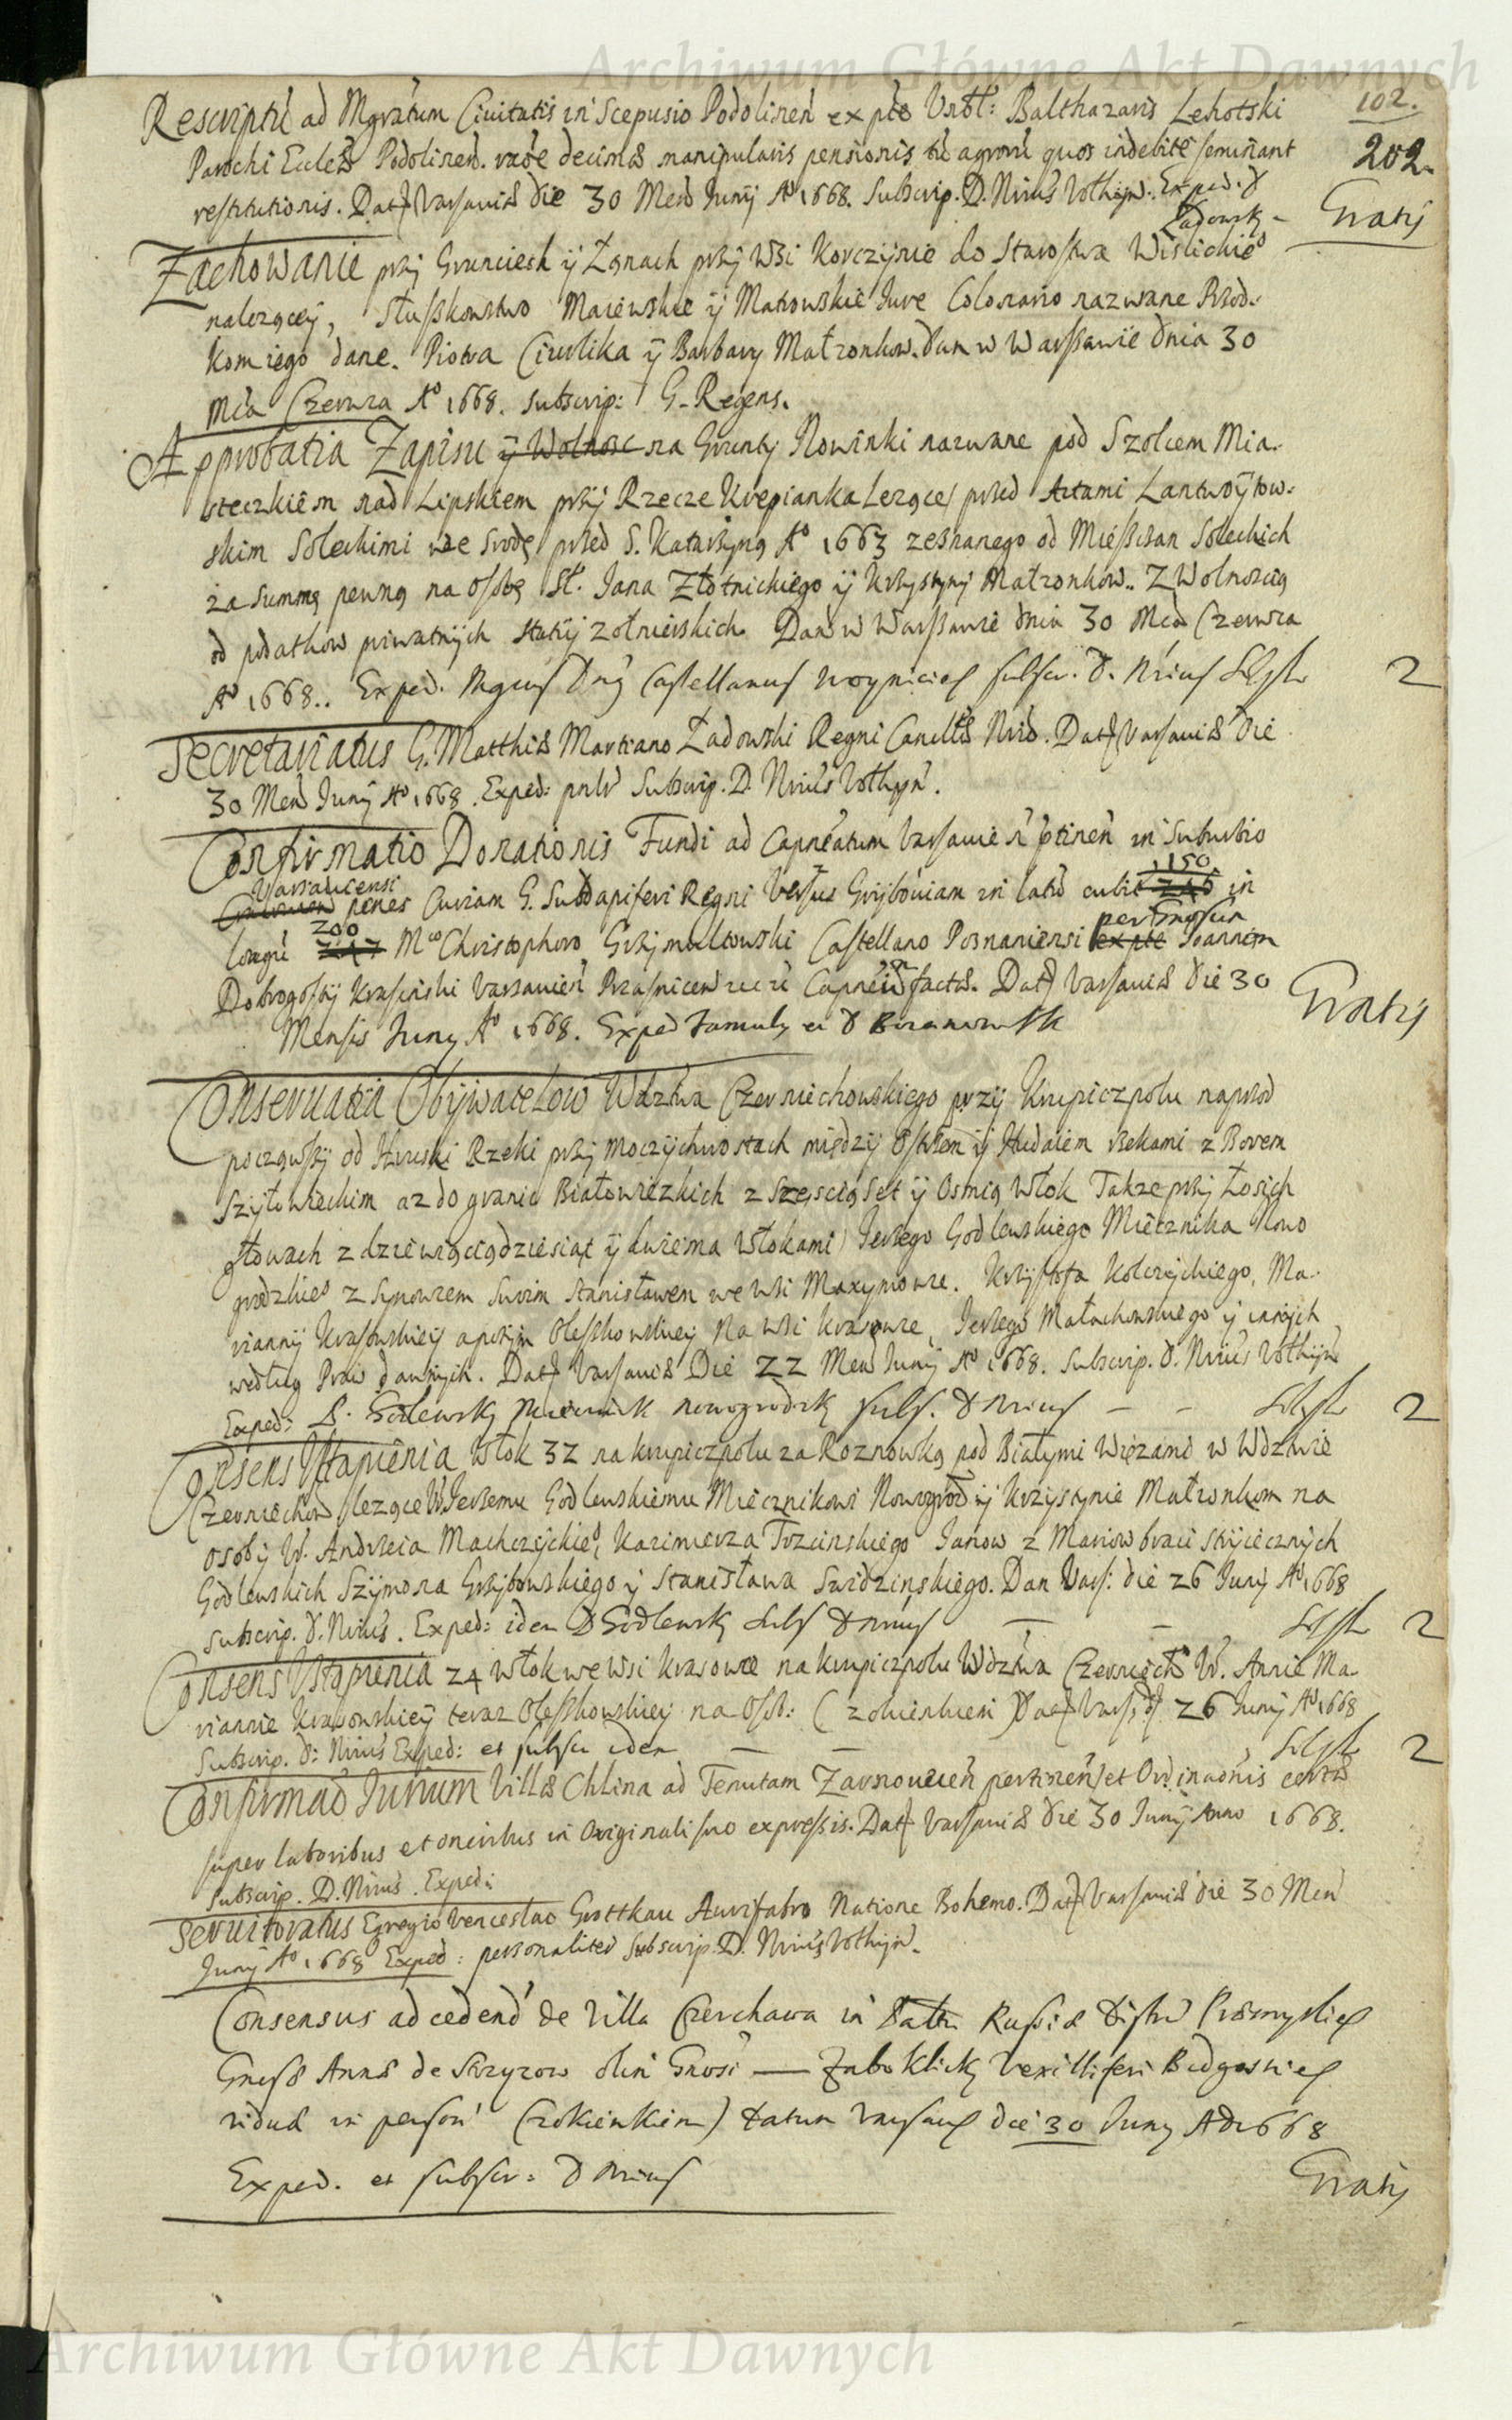 Archiwum Główne Akt Dawnych
102.
202.
Rescriptũ ad Mgratum Civitatis in Scepusio Podolineñ ex pte Vnbl: Balthazaris Lehotski
Parochi Eccles Podolineñ. decimæ manipularis pensionis agrorũ quos indebite seminant
restitutionis. Dat Varsaviæ die 30 Mens Junij Aº 1668. Subscrip. D. Nrius Volhyn. Exped. D
Zadowsk –
Gratis
Zachowanie przÿ Grunciech ÿ Łąnach przÿ Wsi Korczÿnie do Starostwa Wislickieº
nalezącej, Stusskowstwo Maiewskie ÿ Matrowskie Jure Colonario nazwane Przod.
kom iego dane. Piotra Ciurlika ÿ Barbary Małzonkow. Dan w Warssawie dnia 30
Mca Czerwca Aº 1668. Subscrip: G. Regens.
Approbatia Zapisu ÿ Wolnosc na Gruntÿ Nowinki nazwane pod Szolcem Mia.
steczkiem nad Lipskiem przÿ Rzecze Krepianka Lezące przed Actami Lantwoÿtow.
skim Soleckimi we Srodę przed S. Katarzyną Aº 1663 zeznanego od Miesscsan Soleckich
za summę pewną na osobę Sł. Jana Złotnickiego ÿ Krzystyny Małzonkow.. Z Wolnoscią
od podatkow priwatnÿch Statiÿ Zołnierskich. Dan w Warssawie dnia 30 Mca Czerwca
Aº 1668.. Exped. Mgcus Dnus Castellanus Woyniciesis subscr. D. Nrius
2
Secretariatus G. Matthiæ Martiano Zadowski Regni Cancells Nrio. Dat Varsaviæ Die
30 Mens Junÿ Aº 1668. Exped: pnlr Subscrip. D. Nrius Volhyñ.
Confirmatio Donationis Fundi ad Capneatum Varsavieñ ptineñ in Suburbio
Varsaviensi 1150.
penes Curiam G. Subdapiferi Regni Versus Grÿbowiam in latũ cubit in
200 per Gnosum
longũ Mco Christophoro Grzÿmultowski Castellano Posnaniensi ex pte Joannem
Dobrogostÿ Krasinski Varsavieñ Prasniceñ Capneũ factæ. Dat Varsaviæ die 30
Mensis Juny Aº 1668. Exped famulus ei D
Gratis
Conservatia Obÿwatelow Wdztwa Czerniechowskiego przÿ Krupiczpolu naprzod
począwsÿ od Hruski Rzeki przÿ Moczÿchwostach międzÿ Ostrem ÿ Hudaiem rzekami z Borem
Szÿłowieckim az do granic Białowiezkich z Szescią set ÿ Osmią Włok Takze przÿ Łosich
głowach z dziewiąciądziesiąt ÿ dwiema Włokami Jerzego Godlewskiego Miecznika Nowo
grodzkieº z Synowcem Swoim Stanisławem we Wsi Maxymowce. Krzÿsztofa Kolczÿckiego, Ma.
riannÿ Krasowskieÿ apotÿm Olesskowskieÿ Na Wsi Krasowce, Jerzego Małachowskiego ÿ innÿch
według Praw dawnÿch. Dat Varsaviæ Die 22 Mens Junÿ Aº 1668. Subscrip. D. Nrius Volhÿn
Exped: P. Godlewsky Miecznik Nowogrodzky subs. D Nrius – –
2
Consens Vstąpienia Włok 32 na krupiczpolu za Roznowką pod Białymi Wiezami w Wdztwie
Czerniechow lezące W. Jerzemu Godlewskiemu Miecznikowi Nowogrod ÿ Krzystynie Małzonkom na
osobÿ W. Andrzeia Machczÿckieº, Kazimierza Trzcinskiego Janow z Mariow braci strÿiecznÿch
Godlewskich Szÿmona Grzÿbowskiego ÿ Stanisława Swidzinskiego. Dan Vars: die 26 Junÿ Aº 1668
Subscrip. D. Nrius. Exped: idem D Godlewsky Subs D Nrius – –
2
Consens Vstąpienia 24 włok we wsi Krasowce na krupiczpolu Wdztwa Czerniech W. Annie Ma
riannie Krasowskieÿ teraz Olesskowskieÿ na Osob: (z okienkiem) Dat Vars, d 26 Junÿ Aº 1668
Subscrip. D: Nrius Exped: et subscr idem – –
2
Confirmaõ Jurium Villæ Chlina ad Tenutam Zarnovieñ pertineñ et Ordinaõnis certæ
super laboribus et oneribus in Originali suo expressis. Dat Varsaviæ die 30 Junÿ Anno 1668.
Subscrip. D. Nrius. Exped:
Servitoratus Egregio Venceslao Grottkau Aurifabro Natione Bohemo. Dat Varsaviæ die 30 Mens
Junÿ Aº 1668 Exped: personaliter Subscrip. D. Nrius Volhÿn.
Consensus ad cedend de Villa Czerchawa in Russiæ Distr Præmysliens
Gnosæ Annæ de Skrzyzow olim Gnosi — Zaboklicky Vexilliferi Bidgostiens
viduæ in person (z okienkiem) datum Varsaviæ die 30 Juny Aº 1668
Exped. et subscr: D Nrius
Gratis
Archiwum Główne Akt Dawnych